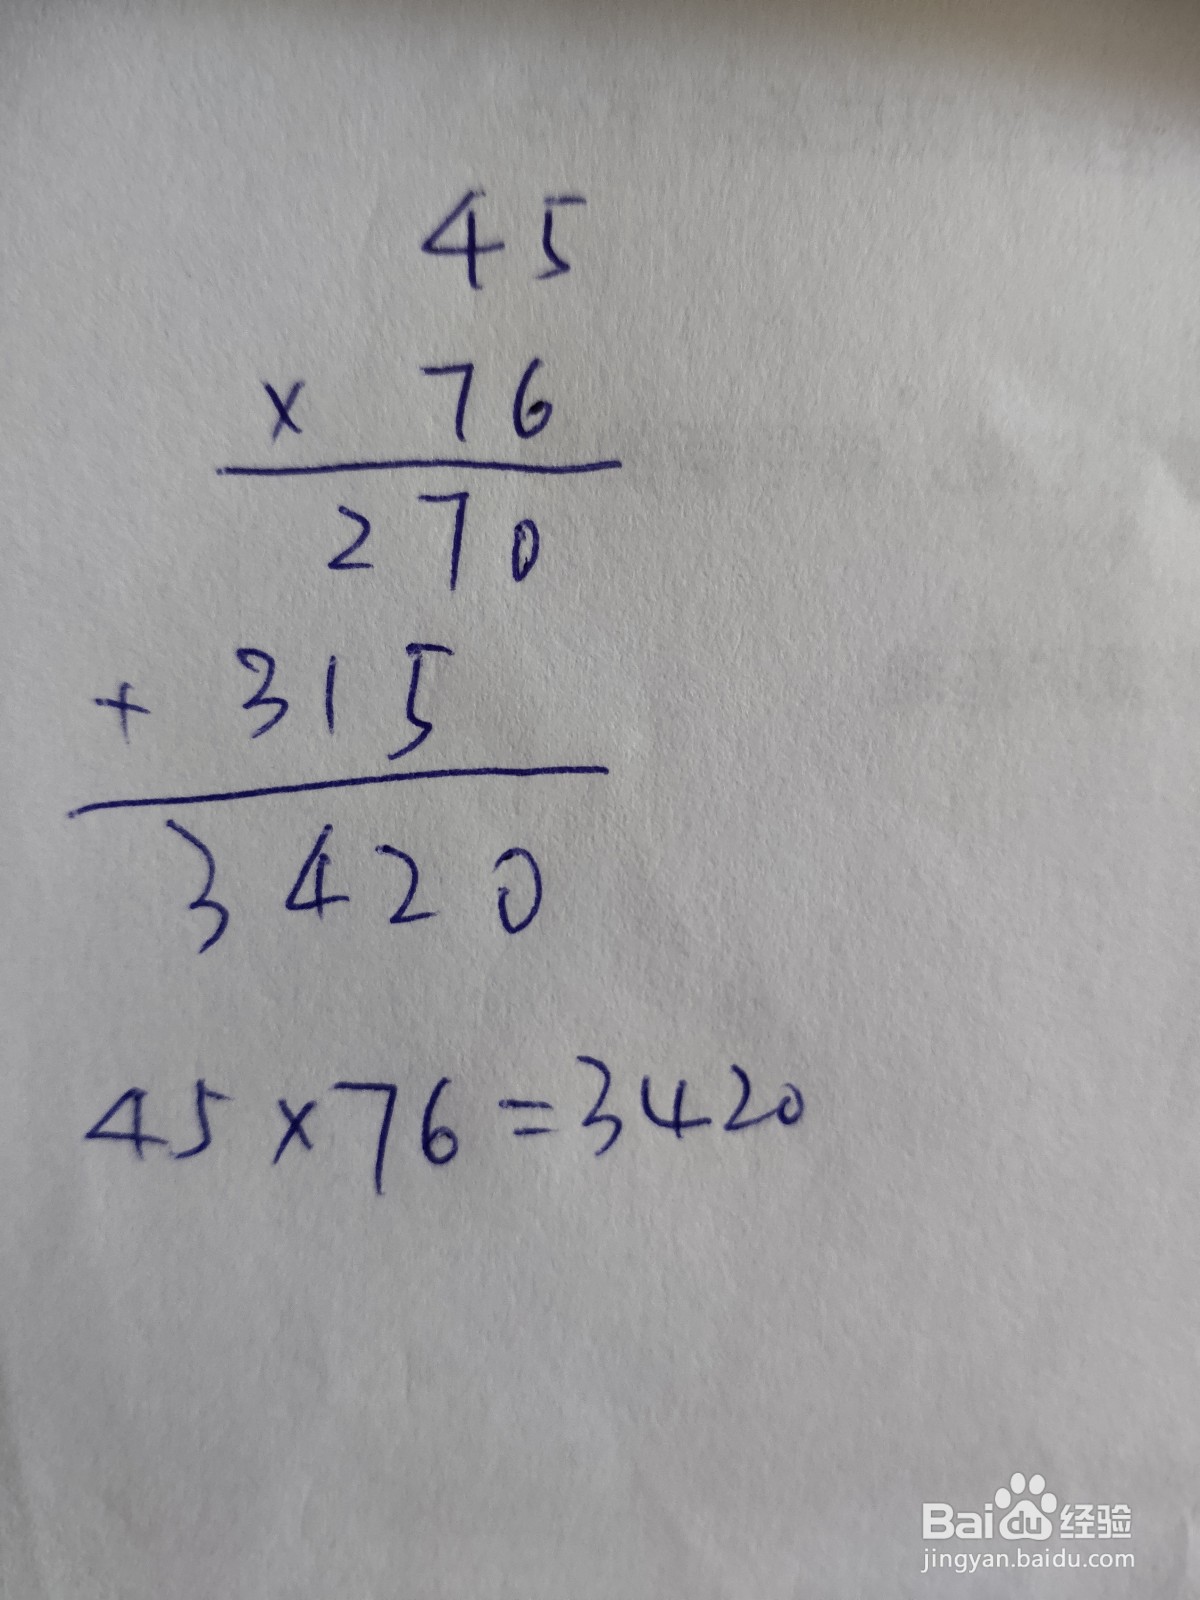 45
× 76
270
+ 315
3420
45×76=3420
Baidu经验
jingyan.baidu.com